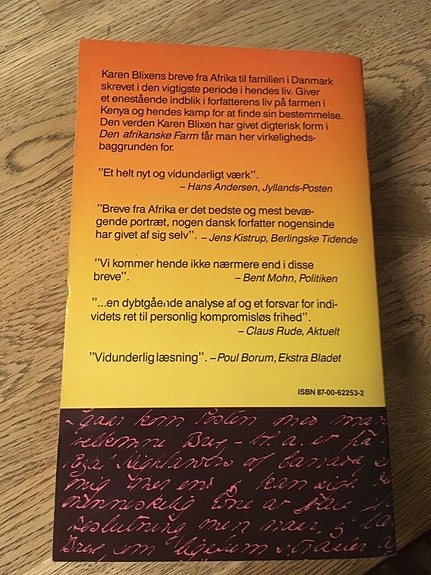 Karen Blixens breve fra Afrika til familien i Danmark
skrevet i den vigtigste periode i hendes liv. Giver
et enestående indblik i forfatterens liv på farmen i
Kenya og hendes kamp for at finde sin bestemmelse.
Den verden Karen Blixen har givet digterisk form i
Den afrikanske Farm får man her virkeligheds-
baggrunden for.
"Et helt nyt og vidunderligt værk".
– Hans Andersen, Jyllands-Posten
"Breve fra Afrika er det bedste og mest bevæ-
gende portræt, nogen dansk forfatter nogensinde
har givet af sig selv". – Jens Kistrup, Berlingske Tidende
"Vi kommer hende ikke nærmere end i disse
breve". – Bent Mohn, Politiken
"...en dybtgående analyse af og et forsvar for indi-
videts ret til personlig kompromisløs frihed".
– Claus Rude, Aktuelt
"Vidunderlig læsning". – Poul Borum, Ekstra Bladet
ISBN 87-00-62253-2
Igaar kom Posten med man
velkomne Brev – bl. a. er på
Royal Highlanders of Canada
mig mere end
menneskelig
Beslutning, men naar
Brev, som ligesom